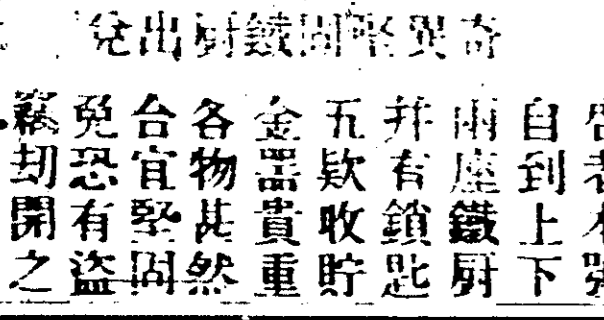 奇異堅固鐵厨出兌
自到上下
兩座鐵厨
并有鎖匙
五欵收貯
金器貴重
各物甚然
台宜堅固
免恐有盜
竊刧開之